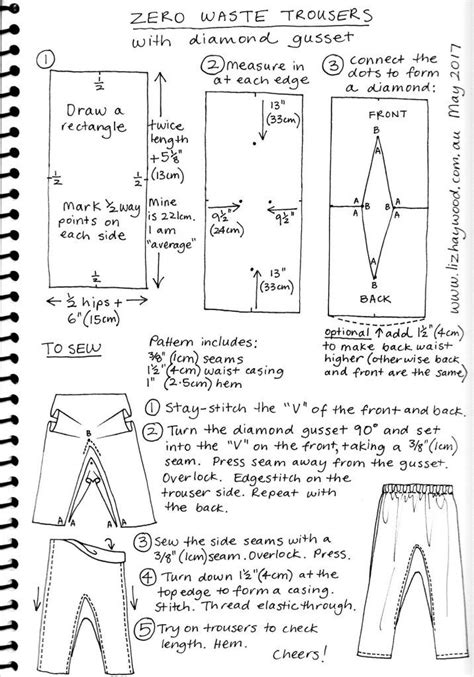 ZERO WASTE TROUSERS
with diamond gusset
①
1/2
Draw a
rectangle
1/2
1/2
Mark 1/2 way
points on
each side
1/2
twice
length
+5 1/8"
(13cm)
Mine
is 221cm.
I am
"average"
← 1/2 hips + →
6" (15cm)
② measure in
at each edge
13"
(33cm)
9 1/2"
(24cm)
9 1/2"
13"
(33cm)
③ connect the
dots to form
a diamond:
FRONT
B
A A
A B B A
A A
B
BACK
optional ↑ add 1 1/2" (4cm)
to make back waist
higher (otherwise back
and front are the same)
www.lizhaywood.com.au May 2017
TO SEW
Pattern includes:
3/8" (1cm) seams
1 1/2" (4cm) waist casing
1" (2.5cm) hem
① Stay-stitch the "V" of the front and back.
② Turn the diamond gusset 90° and set
into the "V" on the front, taking a 3/8" (1cm)
seam. Press seam away from the gusset.
Overlock. Edgestitch on the
trouser side. Repeat with
the back.
B
A A A A
③ Sew the side seams with a
3/8" (1cm) seam. Overlock. Press.
④ Turn down 1 1/2" (4cm) at the
top edge to form a casing.
Stitch. Thread elastic through.
⑤ Try on trousers to check
length. Hem.
Cheers!